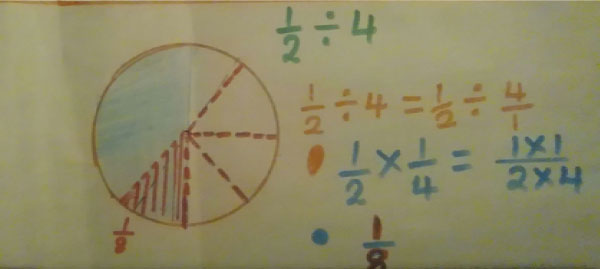 1/2 ÷ 4
1/2 ÷ 4 = 1/2 ÷ 4/1
1/2 × 1/4 = 1×1/2×4
1/8
1/8